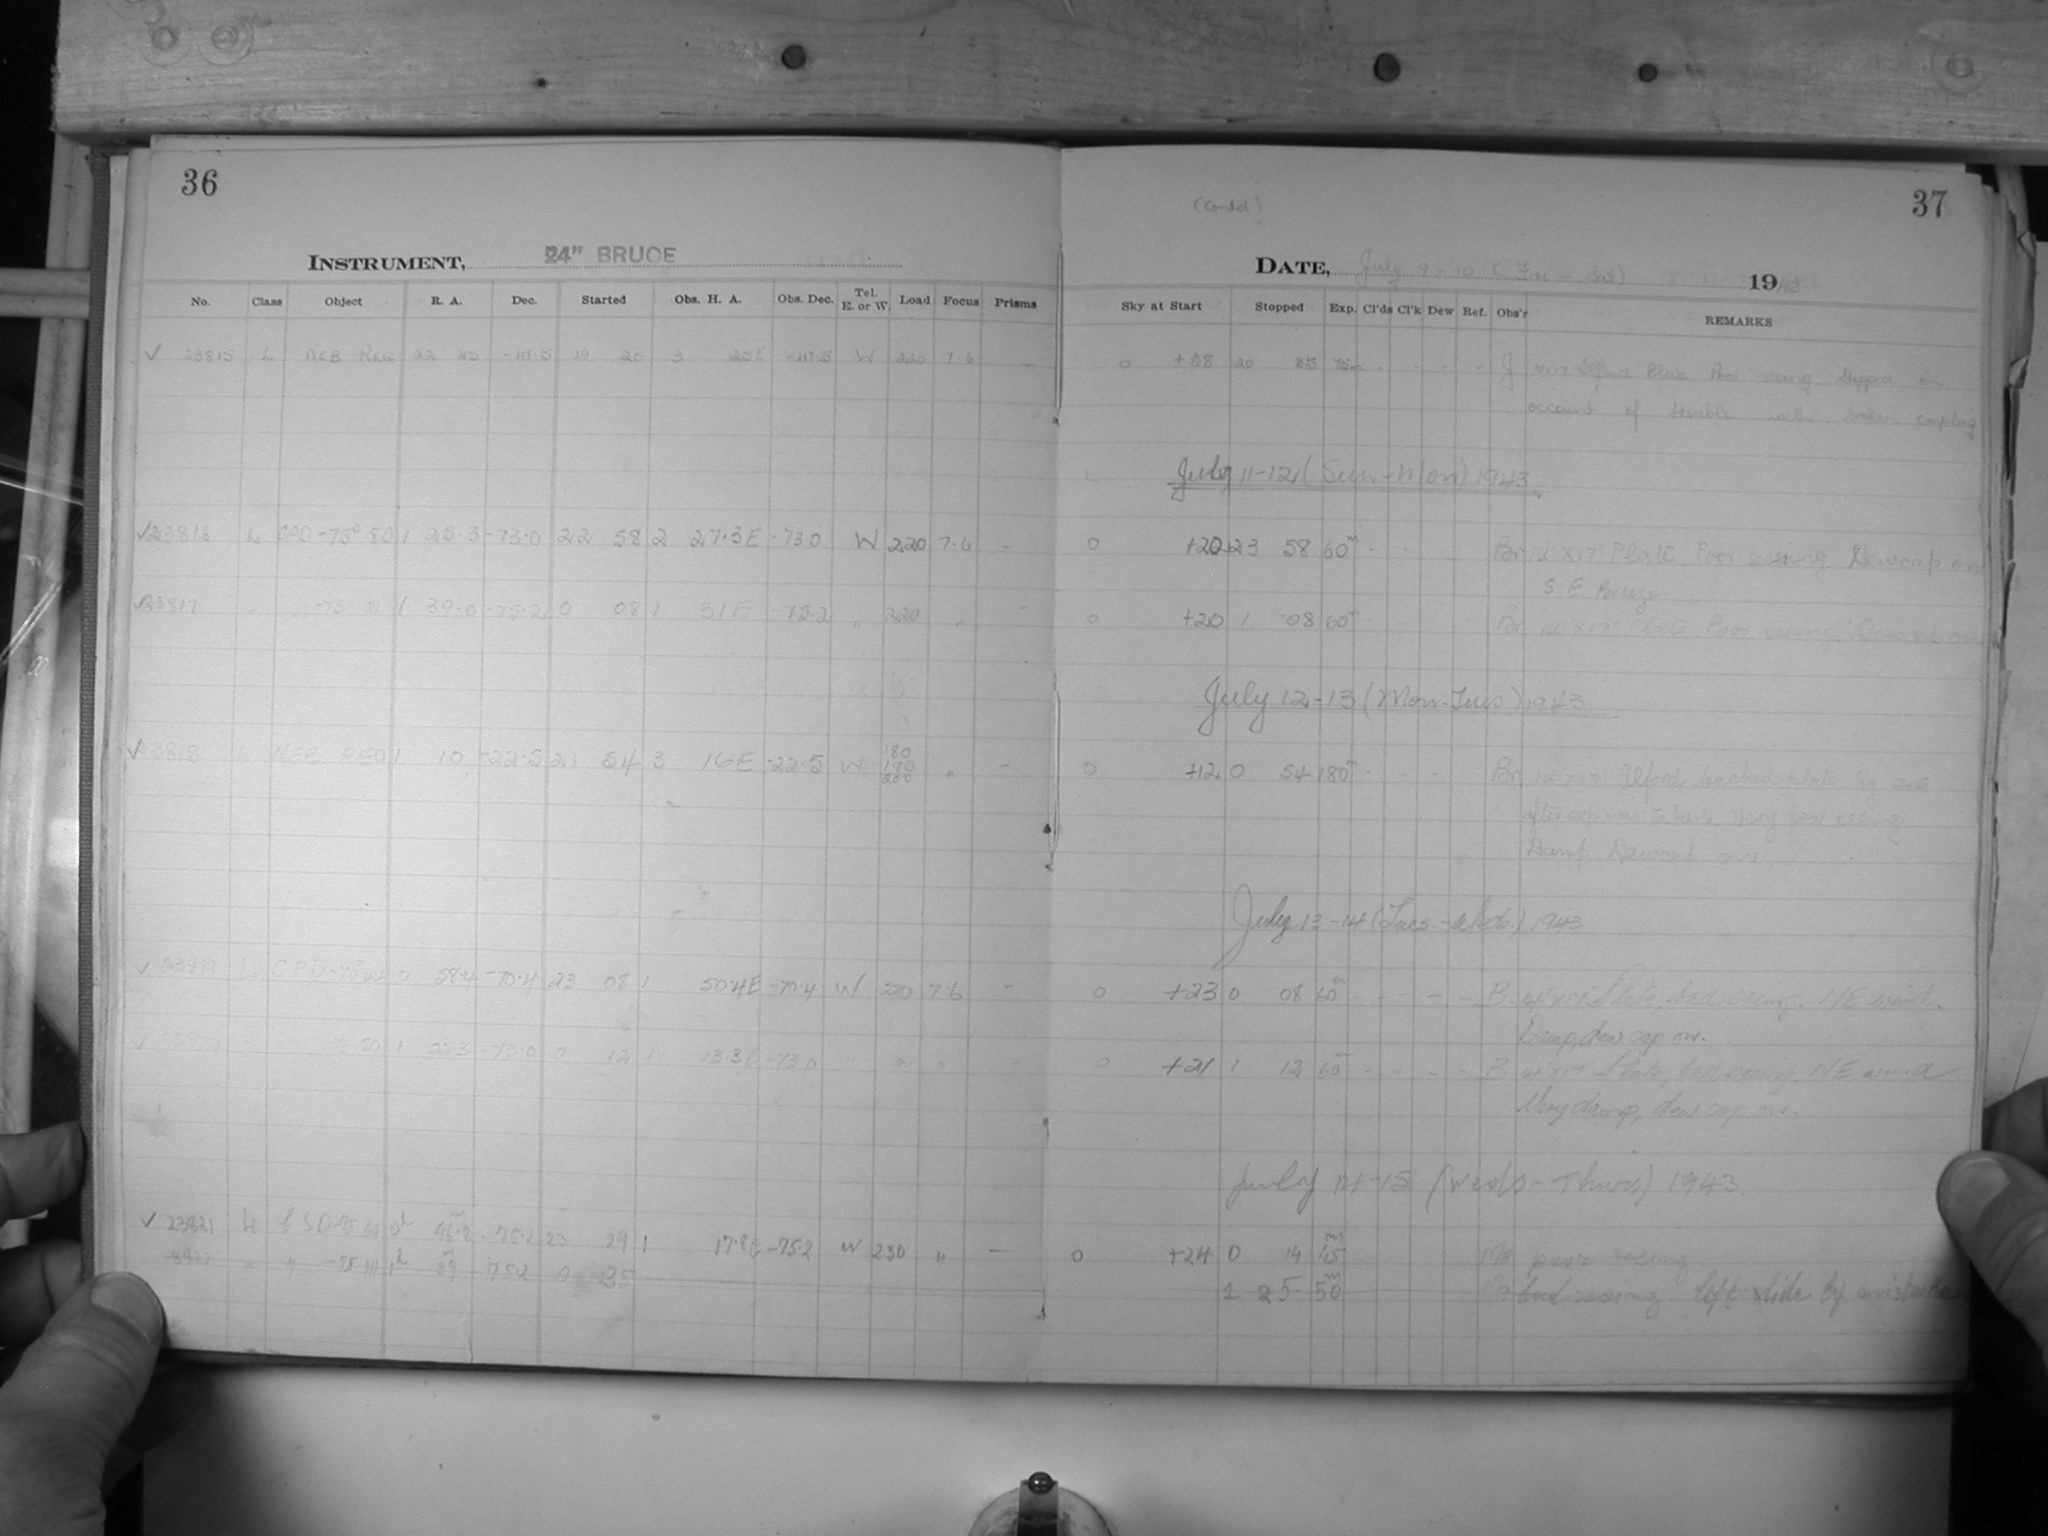 36
INSTRUMENT, 24" BRUCE
No. Class Object R. A. Dec. Started Obs. H. A. Obs. Dec. Tel. E. or W. Load Focus Prisms
√ 23815 L NEB REG 22 45 -47.5 19 20 3 25E -47.5 W 220 7.6 —
√23816 L CPD-73° 80 1 25.3 -73.0 22 58 2 27.3E -73.0 W 220 7.6 —
√23817 " -75 111 1 39.0 -75.2 0 08 1 31E -75.2 " 220 " —
√23818 L NEB REG 1 10 -22.5 21 54 3 16E -22.5 W 180 190 200 " —
√ 23819 L CPD-70° 0 58.4 -70.4 23 08 1 50.4E -70.4 W 220 7.6 —
√ 1 25.3 -73.0 0 12 1 13.3E -73.0 " " " —
√ 23821 L 0h 45.8m -75.2 23 29 1 17.8E -75.2 W 230 " —
" " -75 111 1h 39m -75.2 0 35
37
(Contd)
DATE, July 9-10 (Fri - Sat) 1943
Sky at Start Stopped Exp. Cl'ds Cl'k Dew Ref. Obs'r REMARKS
0 +38 20 35 75m - - - - J Plate Poor seeing Stopped on
account of trouble with broken coupling
July 11-12 (Sun-Mon) 1943
0 +20 23 58 60m - - - Br 14"x17" Plate. Poor seeing. Dewcap on
S E Breeze
0 +20 1 08 60m - - - Br 14"x17" Plate Poor seeing. Dewcap on
July 12-13 (Mon-Tues) 1943
0 +12 0 54 180m - - - Br 14"x17" Ilford backed plate.
after exp was taken. Very poor seeing
Damp Dewcap on.
July 13-14 (Tues.-Wed.) 1943
0 +23 0 08 60m - - - - B 14"x17" Plate, bad seeing. NE wind.
Damp, dew cap on.
0 +21 1 12 60m - - - - B 14"x17" Plate, bad seeing. NE wind
Very damp, dew cap on.
July 14-15 (Weds-Thurs) 1943
0 +24 0 14 45m poor seeing
1 25 50m bad seeing left slide by mistake